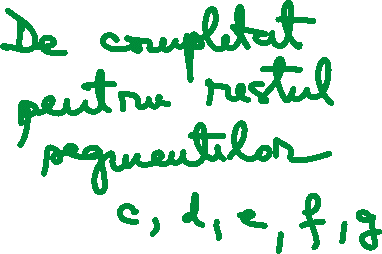 De completat
pentru restul
segmentelor
c, d, e, f, g